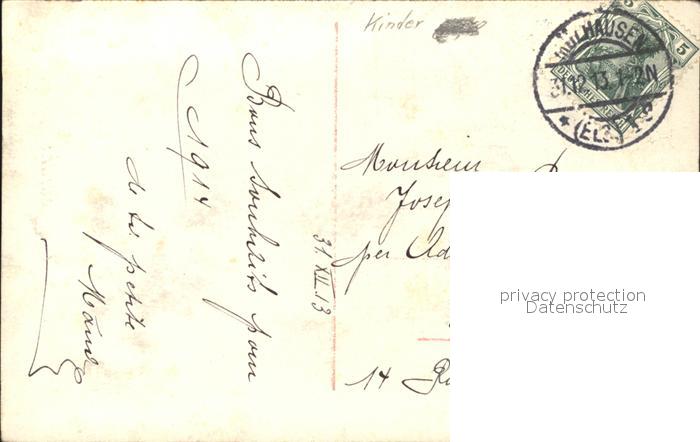 Kinder
MÜLHAUSEN
31.12.13. 1-2N
* (ELS.) 1
5
Bons souhaits pour
1914
de ta petite
31. XII. 13
Monsieur
Jose
per Ad
14 R
privacy protection
Datenschutz